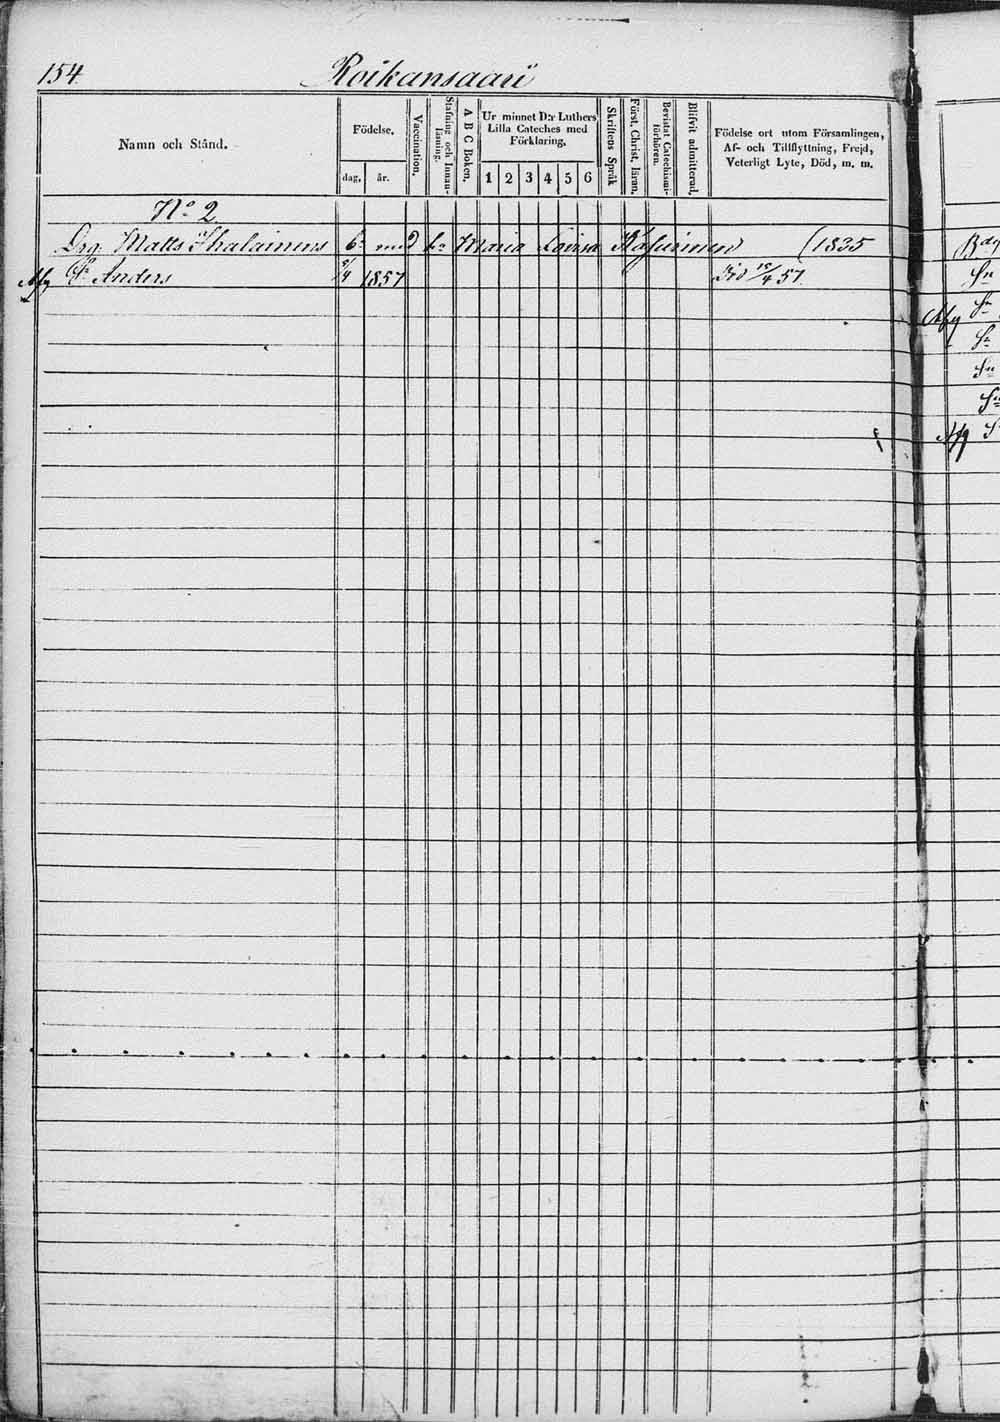 154 Roikansaari
Namn och Stånd.
Födelse.
dag. år.
Vaccination.
Stafning och Innanläsning.
A B C Boken.
Ur minnet D:r Luthers Lilla Cateches med Förklaring.
1 2 3 4 5 6
Skriftens Språk
Först. Christ. läran.
Bevistat Catechismiförhören.
Blifvit admitterad.
Födelse ort utom Församlingen,
Af- och Tillflyttning, Frejd,
Veterligt Lyte, Död, m. m.
No 2
Drg. Matts Ihalainens med Maria Lovisa (1835
Afg Anders 1857 Död 15/4 57.
Afg
Afg